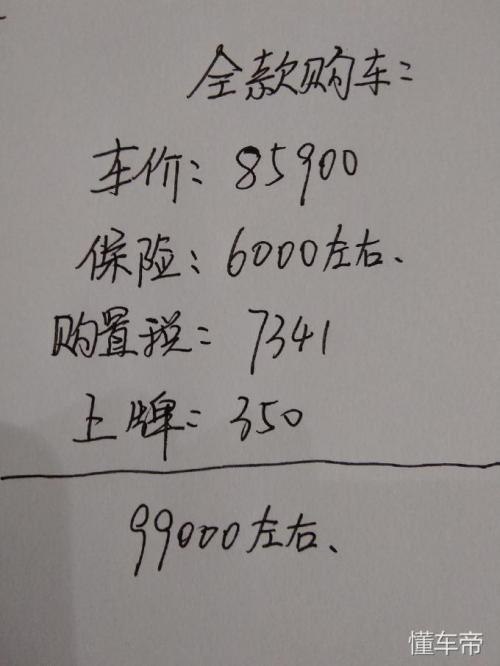 全款购车:
车价: 85900
保险: 6000左右、
购置税: 7341
上牌: 350
99000左右、
懂车帝